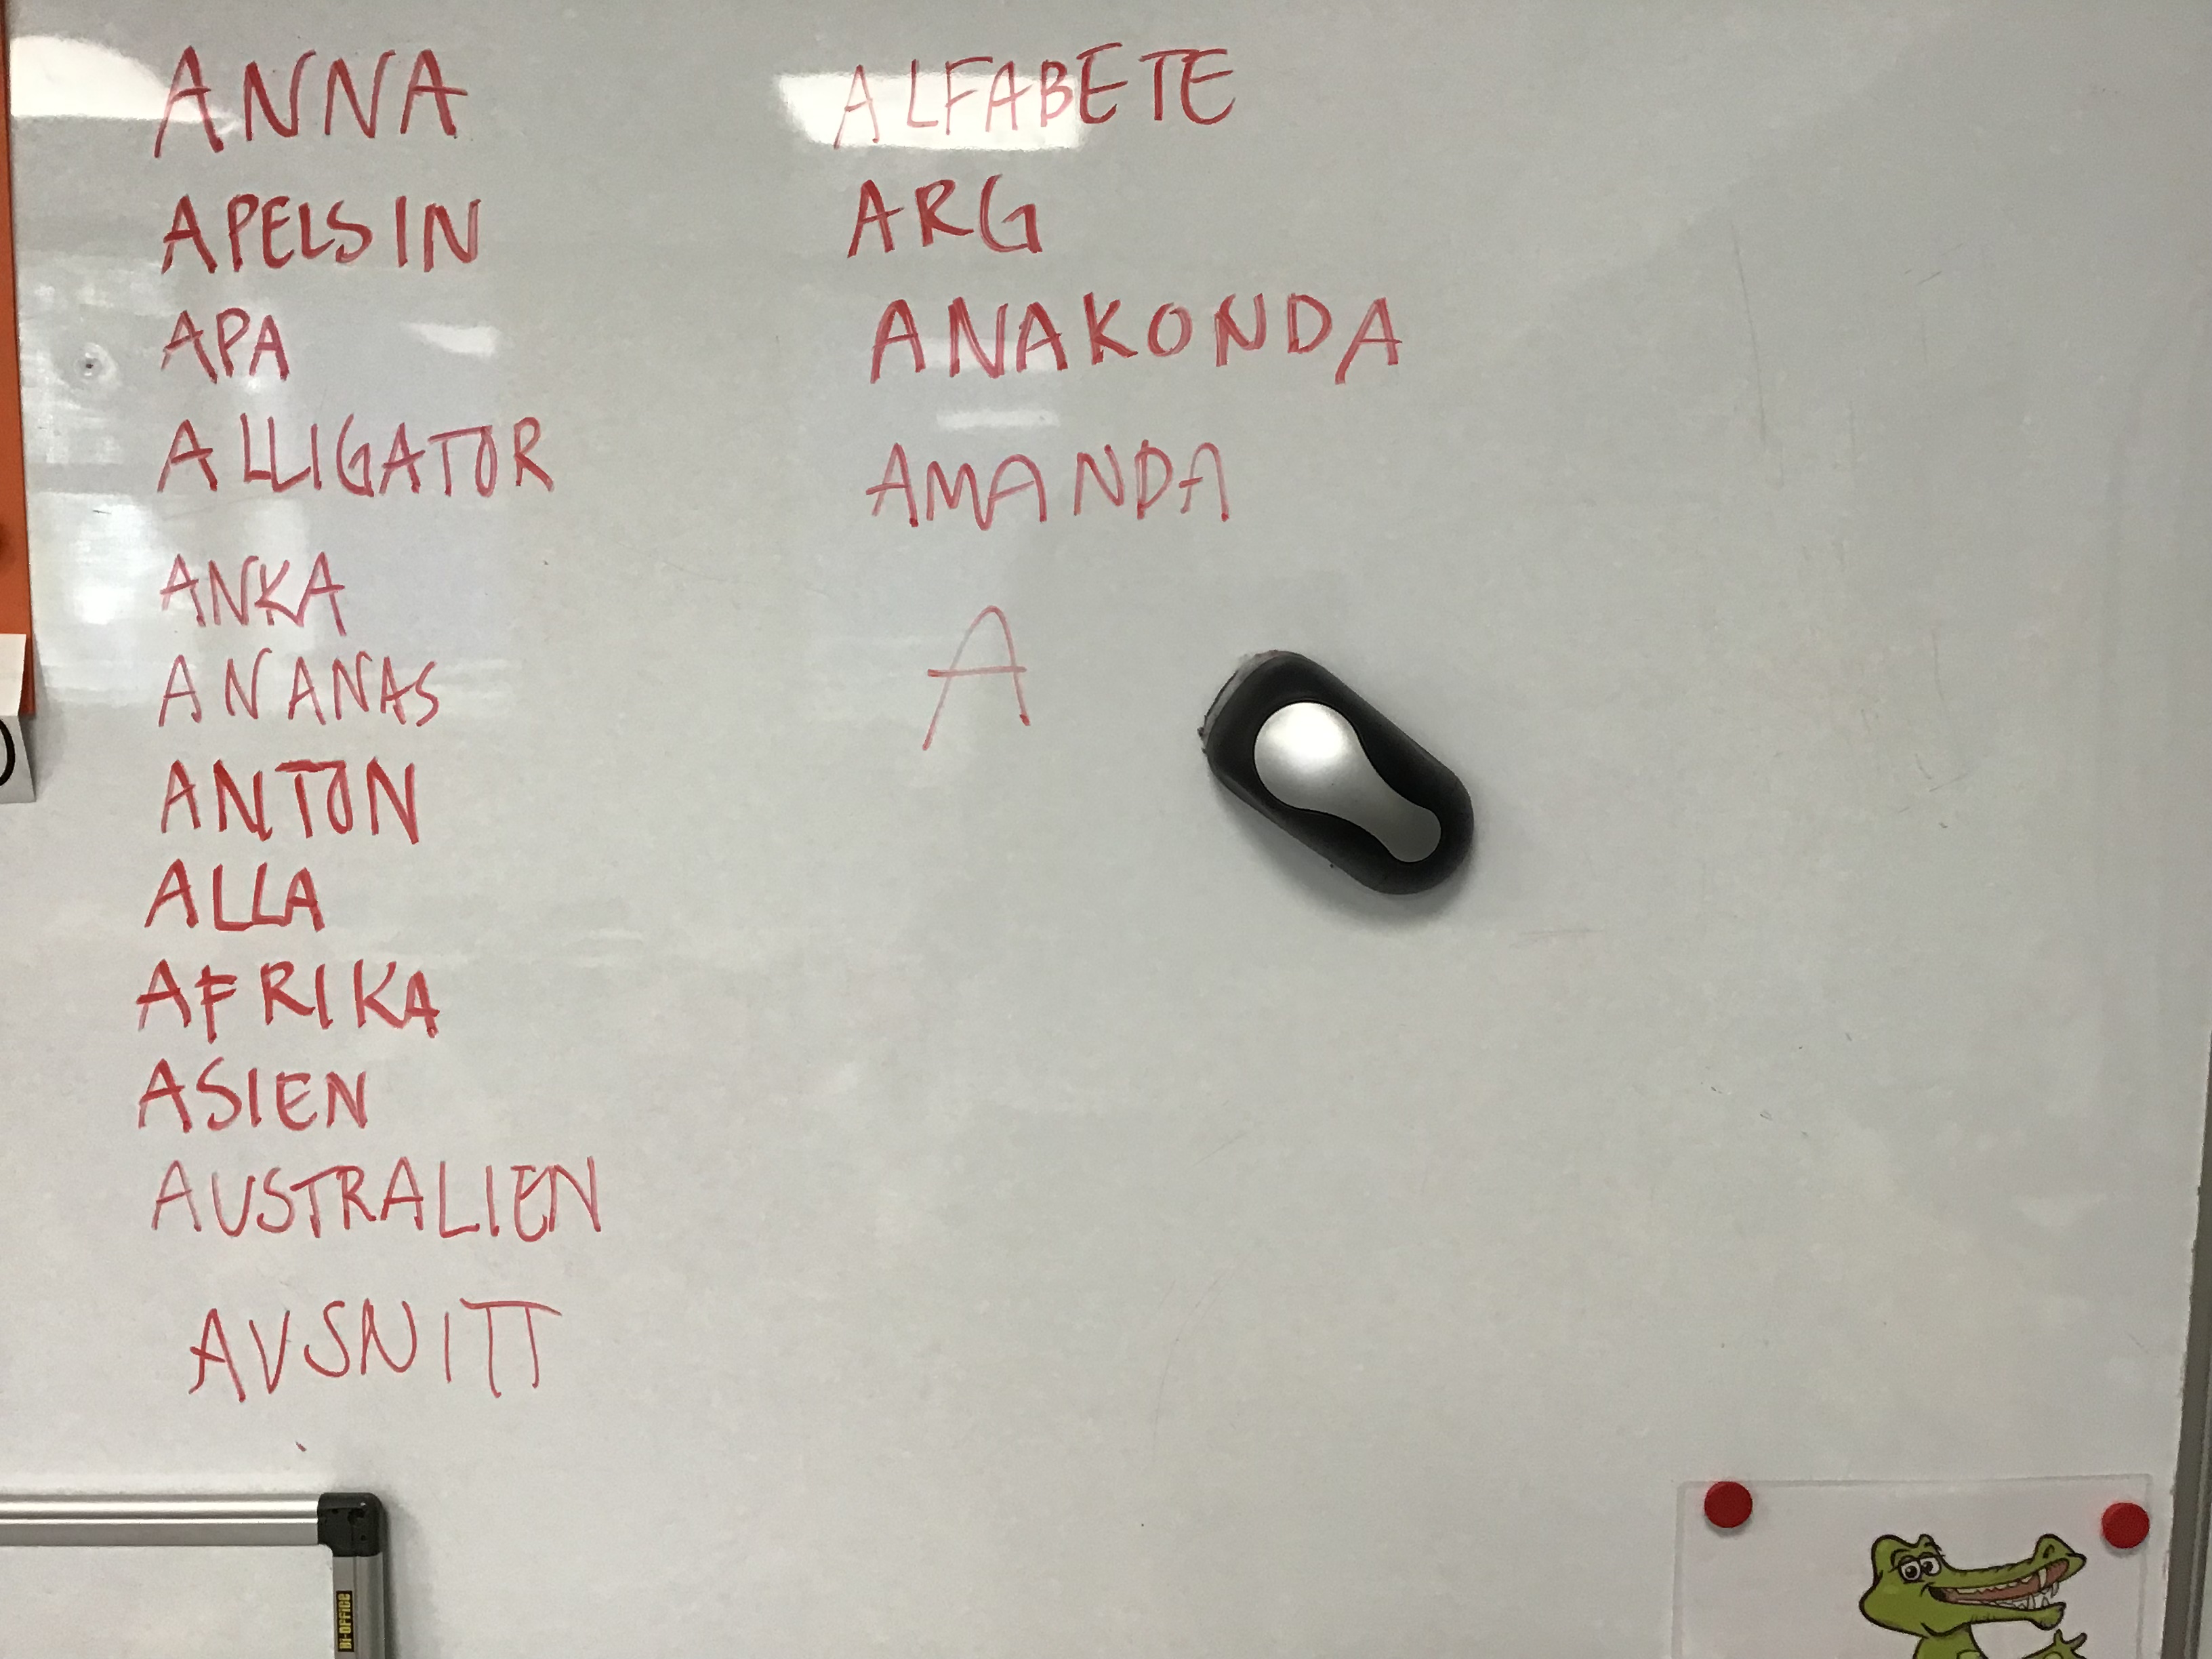 ANNA
APELSIN
APA
ALLIGATOR
ANKA
ANANAS
ANTON
ALLA
AFRIKA
ASIEN
AUSTRALIEN
AVSNITT
ALFABETE
ARG
ANAKONDA
AMANDA
A
Bi-OFFiCE